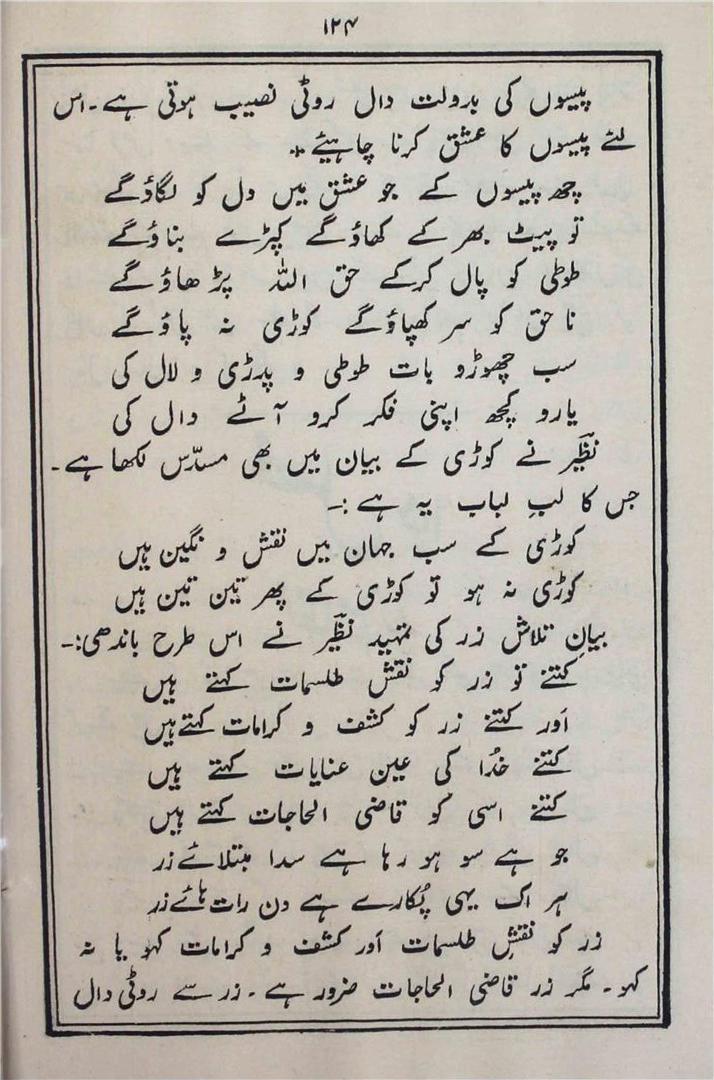 ۱۲۴
پیسوں کی بدولت دال روٹی نصیب ہوتی ہے۔ اس
لئے پیسوں کا عشق کرنا چاہیئے *
چھ پیسوں کے جو عشق میں دل کو لگاؤ گے
تو پیٹ بھر کے کھاؤ گے کپڑے بناؤ گے
طوطی کو پال کر کے حق اللہ پڑھاؤ گے
ناحق کو سر کھپاؤ گے کوڑی نہ پاؤ گے
سب چھوڑو بات طوطی و پدڑی و لال کی
یارو کچھ اپنی فکر کرو آٹے دال کی
نظیرؔ نے کوڑی کے بیان میں بھی مسدّس لکھا ہے۔
جس کا لبِ لباب یہ ہے :۔
کوڑی کے سب جہان میں نقش و نگین ہیں
کوڑی نہ ہو تو کوڑی کے پھر تین تین ہیں
بیانِ تلاش زر کی تمہید نظیرؔ نے اس طرح باندھی :۔
کتنے تو زر کو نقش طلسمات کہتے ہیں
اَور کتنے زر کو کشف و کرامات کہتے ہیں
کتنے خدُا کی عین عنایات کہتے ہیں
کتنے اسی کو قاضی الحاجات کہتے ہیں
جو ہے سو ہو رہا ہے سدا مبتلائے زر
ہر اک یہی پُکارے ہے دن رات ہائے زر
زر کو نقشِ طلسمات اَور کشف و کرامات کہو یا نہ
کہو۔ مگر زر قاضی الحاجات ضرور ہے۔ زر سے روٹی دال